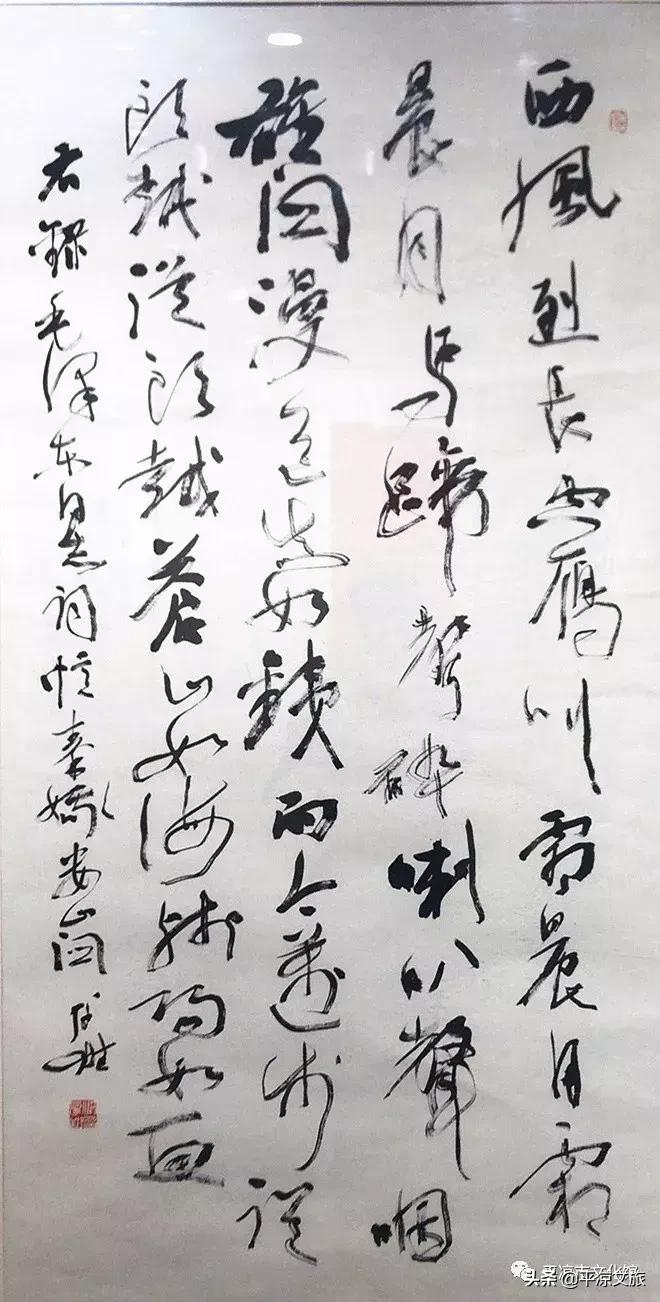 西風烈長空雁叫霜晨月霜
晨月馬蹄聲碎喇叭聲咽
雄関漫道真如鐵而今邁步從
頭越從頭越蒼山如海殘陽如血
右錄毛澤東同志詞憶秦娥婁山関
平凉市文化馆
头条 @平凉文旅